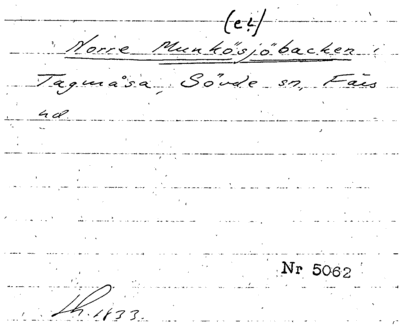 (el.)
Norre Munkösjöbacken
Tagmåsa, Sövde sn, Färs
hd
Nr 5062
Lh. 1833.